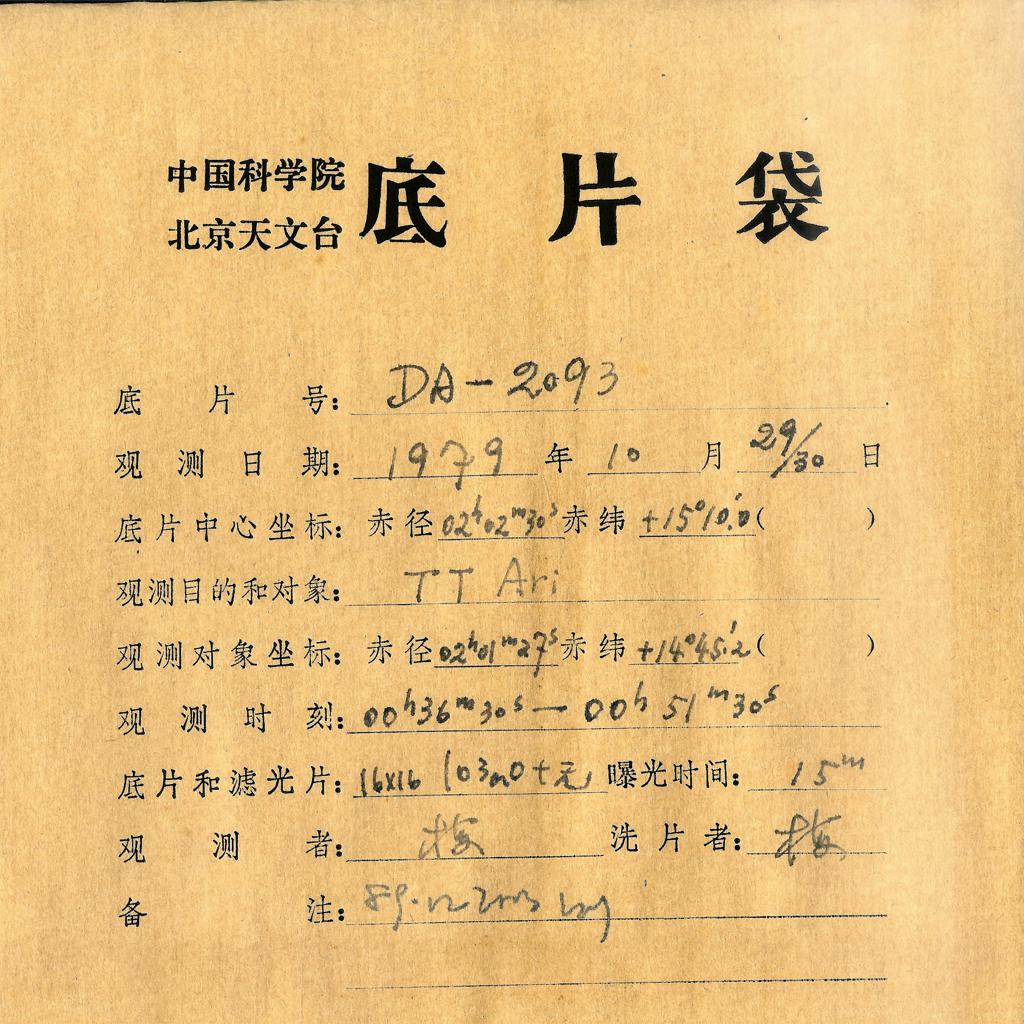 中国科学院
北京天文台 底片袋
底片号: DA-2093
观测日期: 1979 年 10 月 29/30 日
底片中心坐标: 赤径 02ʰ02ᵐ30ˢ 赤纬 +15°10′.0 ( )
观测目的和对象: TT Ari
观测对象坐标: 赤径 02ʰ01ᵐ27ˢ 赤纬 +14°45′.2 ( )
观测时刻: 00ʰ36ᵐ30ˢ — 00ʰ51ᵐ30ˢ
底片和滤光片: 16x16 103aO+无 曝光时间: 15ᵐ
观测者: 梅 洗片者: 梅
备注: